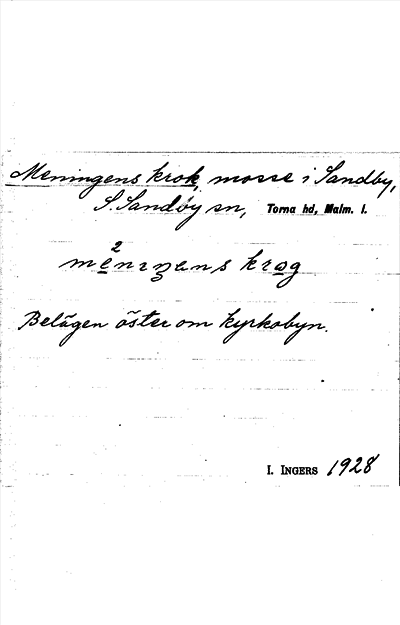 Meningens krok, mosse i Sandby,
S. Sandby sn, Torna hd, Malm. l.
2
menıŋens krog
Belägen öster om kyrkobyn.
I. INGERS 1928